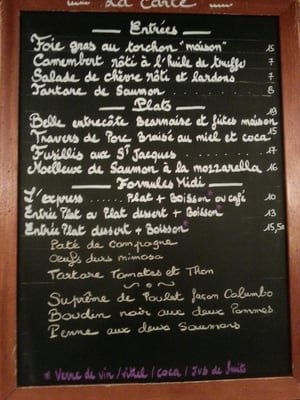 La Carte
Entrées
Foie gras au torchon "maison" 15
Camembert rôti à l'huile de truffe 7
Salade de chèvre rôti et lardons 7
Tartare de Saumon 8
Plats
Belle entrecôte Bearnaise et frites maison 19
Travers de Porc Braisé au miel et coca 15
Fusillis aux St Jacques 17
Moelleux de Saumon à la mozzarella 16
Formules Midi
L'express Plat + Boisson* ou café 10
Entrée Plat ou Plat dessert + Boisson* 13
Entrée Plat dessert + Boisson* 15,50
Paté de campagne
Œufs durs mimosa
Tartare Tomates et Thon
Suprême de Poulet façon Columbo
Boudin noir aux deux Pommes
Penne aux deux Saumons
* Verre de vin / vittel / coca / Jus de fruits